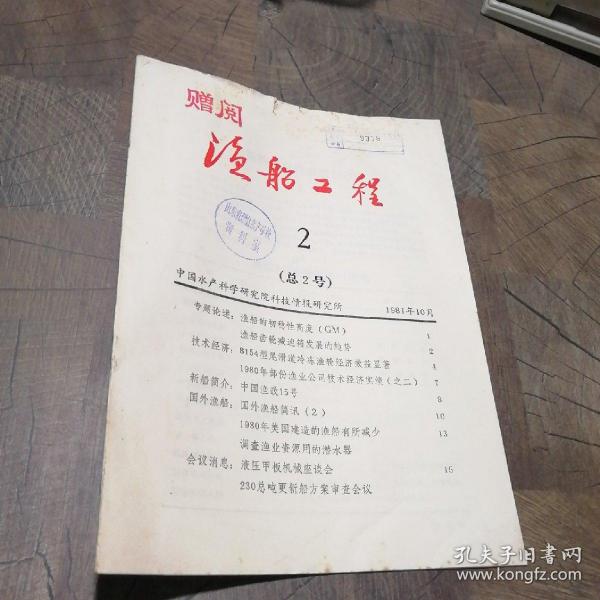 赠阅
9339
渔船工程
资料室
2
(总2号)
中国水产科学研究院科技情报研究所 1981年10月
专题论述：渔船的初稳性高度(GM) 1
渔船齿轮减速箱发展的趋势 2
技术经济：8154型尾滑道冷冻渔轮经济效益显著 4
1980年部份渔业公司技术经济实绩(之二) 7
新船简介：中国渔政15号 8
国外渔船：国外渔船简讯(2) 10
1980年美国建造的渔船有所减少 13
调查渔业资源用的潜水器
会议消息：液压甲板机械座谈会 15
230总吨更新船方案审查会议
孔夫子旧书网
www.kongfz.com